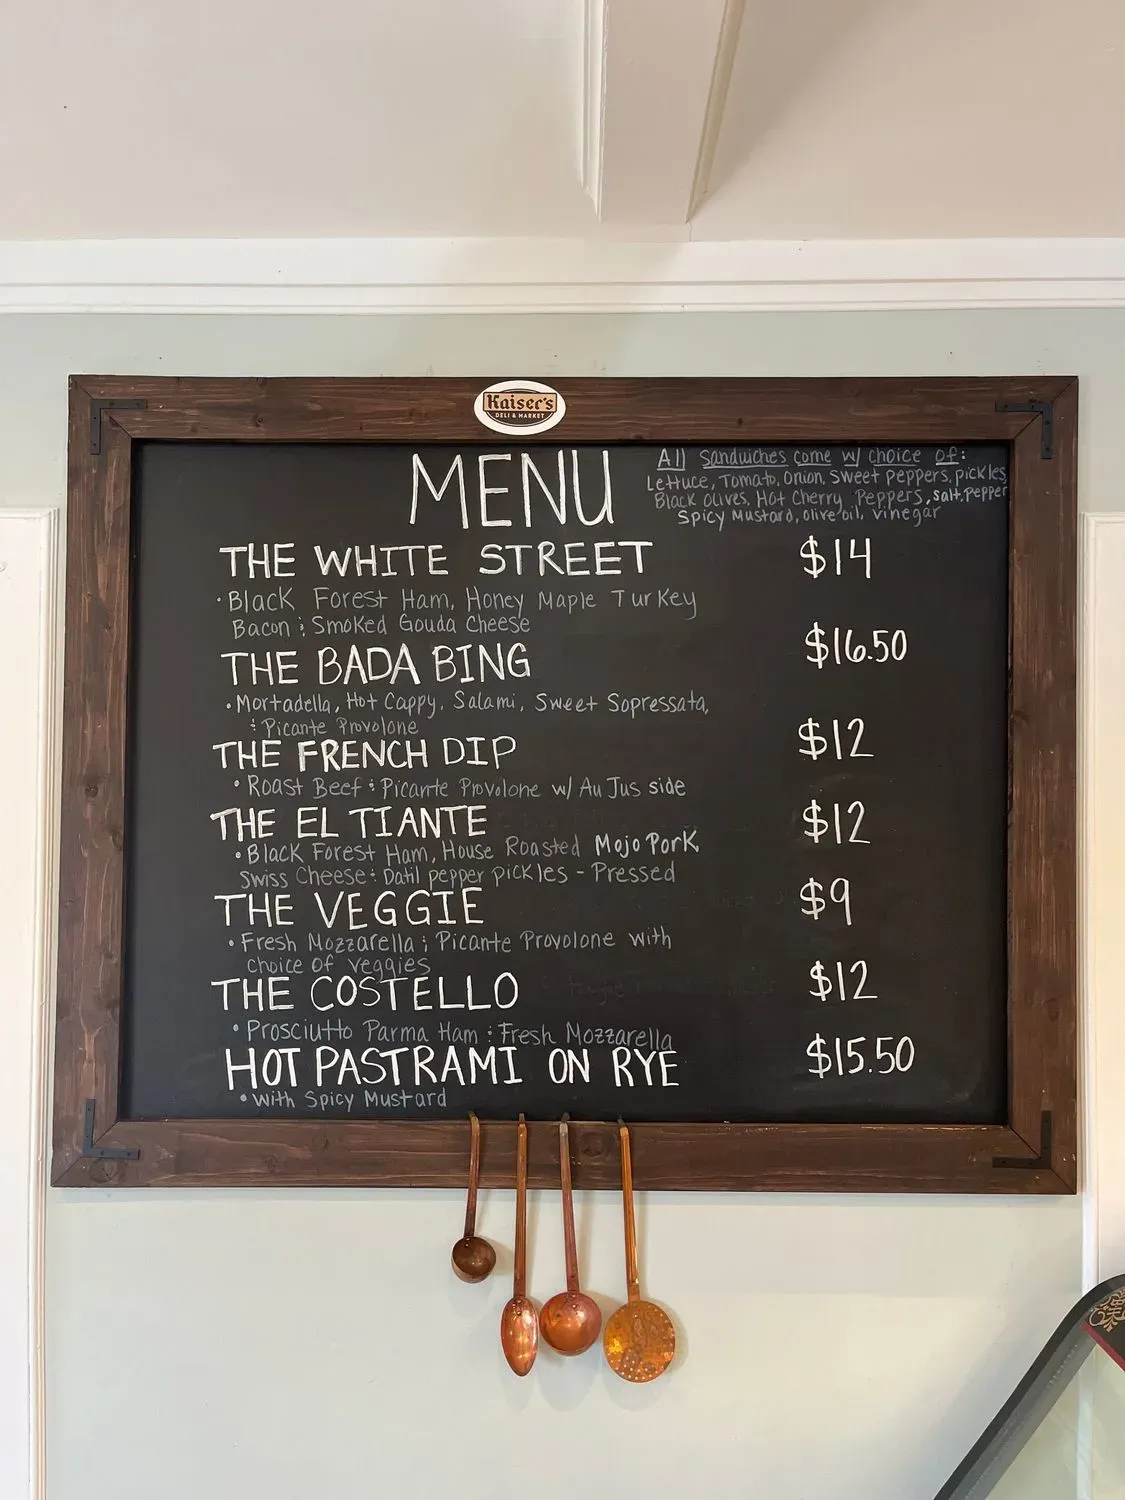 Kaiser's
DELI & MARKET
MENU
All Sandwiches come w/ choice of:
Lettuce, Tomato, Onion, Sweet Peppers, pickles
Black olives, Hot Cherry Peppers, salt, pepper
Spicy Mustard, olive oil, vinegar
THE WHITE STREET $14
• Black Forest Ham, Honey Maple Turkey
Bacon & Smoked Gouda Cheese
THE BADA BING $16.50
• Mortadella, Hot Cappy, Salami, Sweet Sopressata,
& Picante Provolone
THE FRENCH DIP $12
• Roast Beef & Picante Provolone w/ Au Jus side
THE EL TIANTE $12
• Black Forest Ham, House Roasted Mojo Pork
Swiss Cheese & Datil pepper pickles - Pressed
THE VEGGIE $9
• Fresh Mozzarella & Picante Provolone with
choice of veggies
THE COSTELLO $12
• Prosciutto Parma Ham & Fresh Mozzarella
HOT PASTRAMI ON RYE $15.50
• with Spicy Mustard